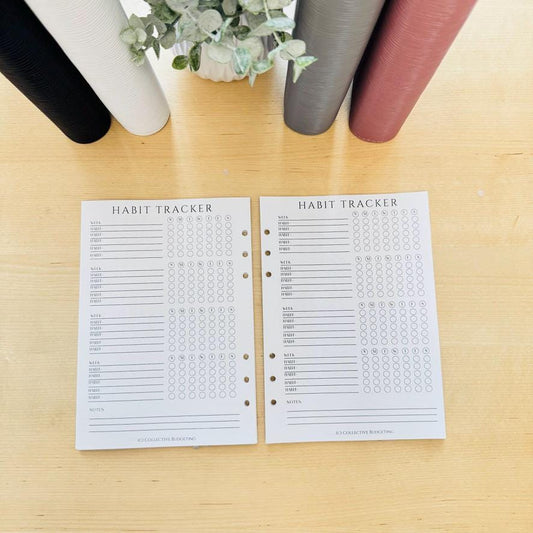 HABIT TRACKER
WEEK
HABIT
HABIT
HABIT
HABIT
HABIT
WEEK
HABIT
HABIT
HABIT
HABIT
HABIT
WEEK
HABIT
HABIT
HABIT
HABIT
HABIT
WEEK
HABIT
HABIT
HABIT
HABIT
HABIT
NOTES
(C) COLLECTIVE BUDGETING
HABIT TRACKER
WEEK
HABIT
HABIT
HABIT
HABIT
HABIT
WEEK
HABIT
HABIT
HABIT
HABIT
HABIT
WEEK
HABIT
HABIT
HABIT
HABIT
HABIT
WEEK
HABIT
HABIT
HABIT
HABIT
HABIT
NOTES
(C) COLLECTIVE BUDGETING